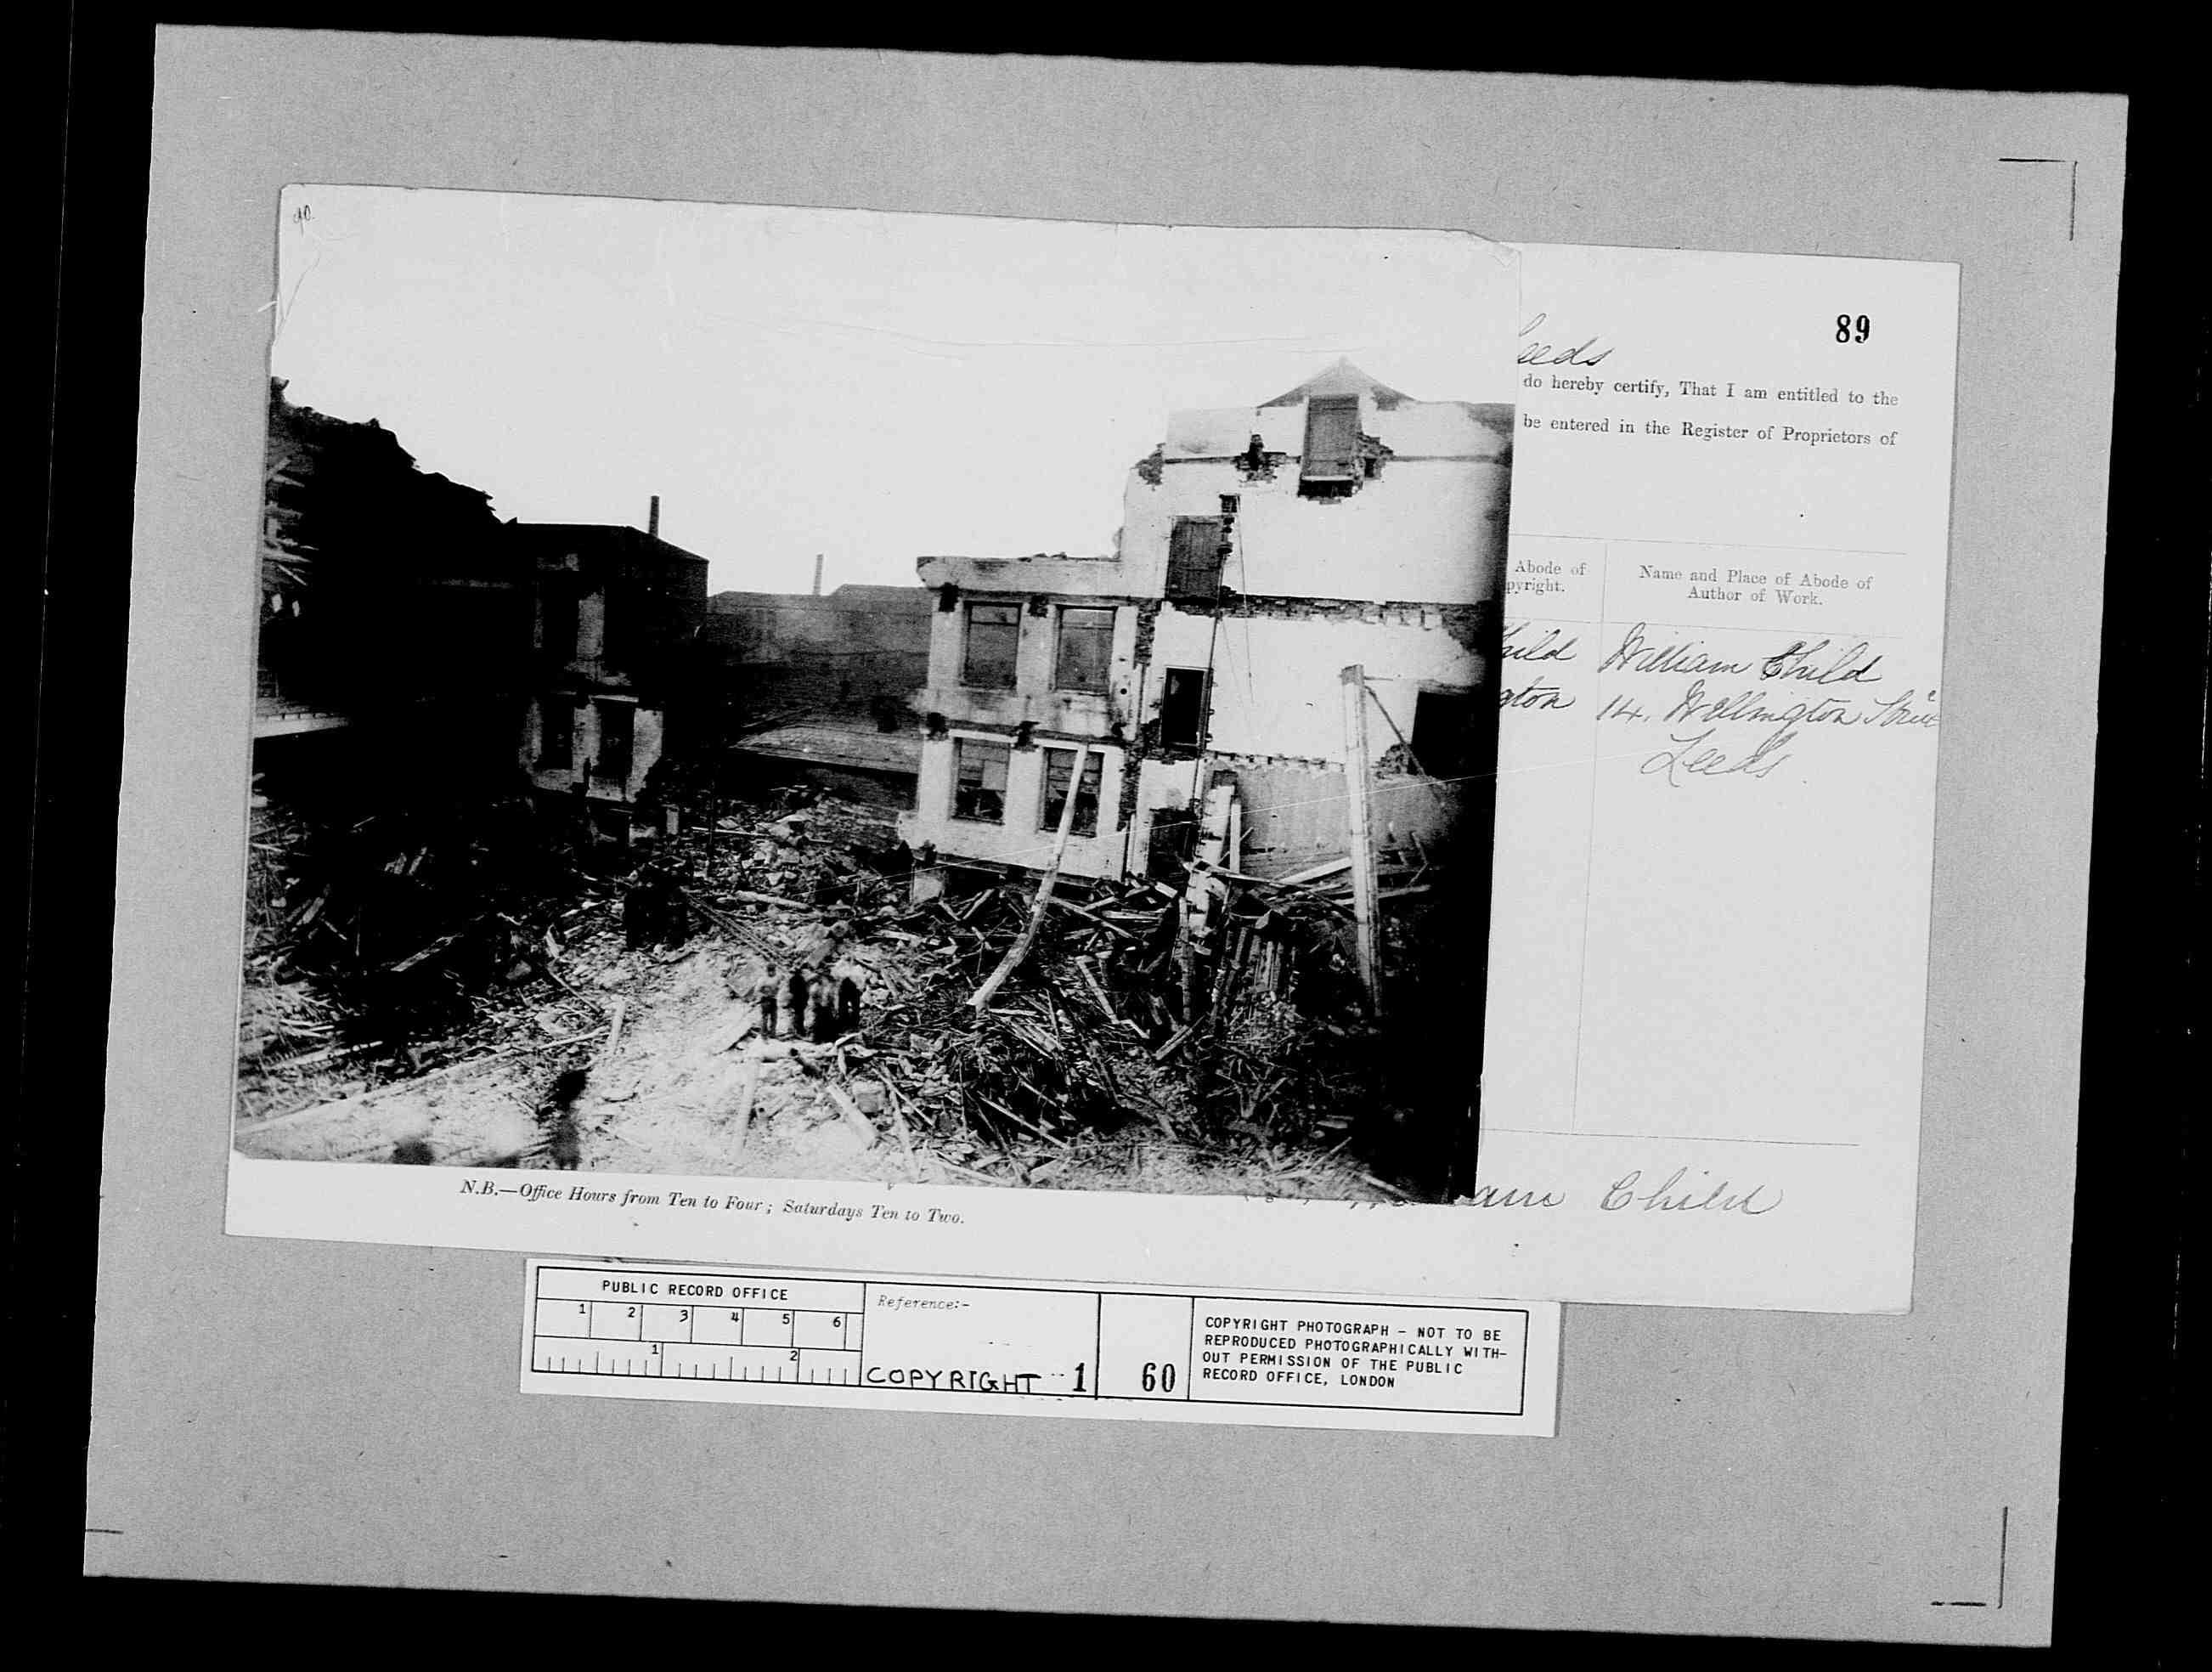 90.
89
Leeds
do hereby certify, That I am entitled to the
be entered in the Register of Proprietors of
Abode of
pyright.
Name and Place of Abode of
Author of Work.
hild
William Child
gton
14. Wellington Street
Leeds.
am Child
N.B.—Office Hours from Ten to Four; Saturdays Ten to Two.
PUBLIC RECORD OFFICE
1 2 3 4 5 6
1 2
Reference:-
COPYRIGHT 1
60
COPYRIGHT PHOTOGRAPH - NOT TO BE
REPRODUCED PHOTOGRAPHICALLY WITH-
OUT PERMISSION OF THE PUBLIC
RECORD OFFICE, LONDON